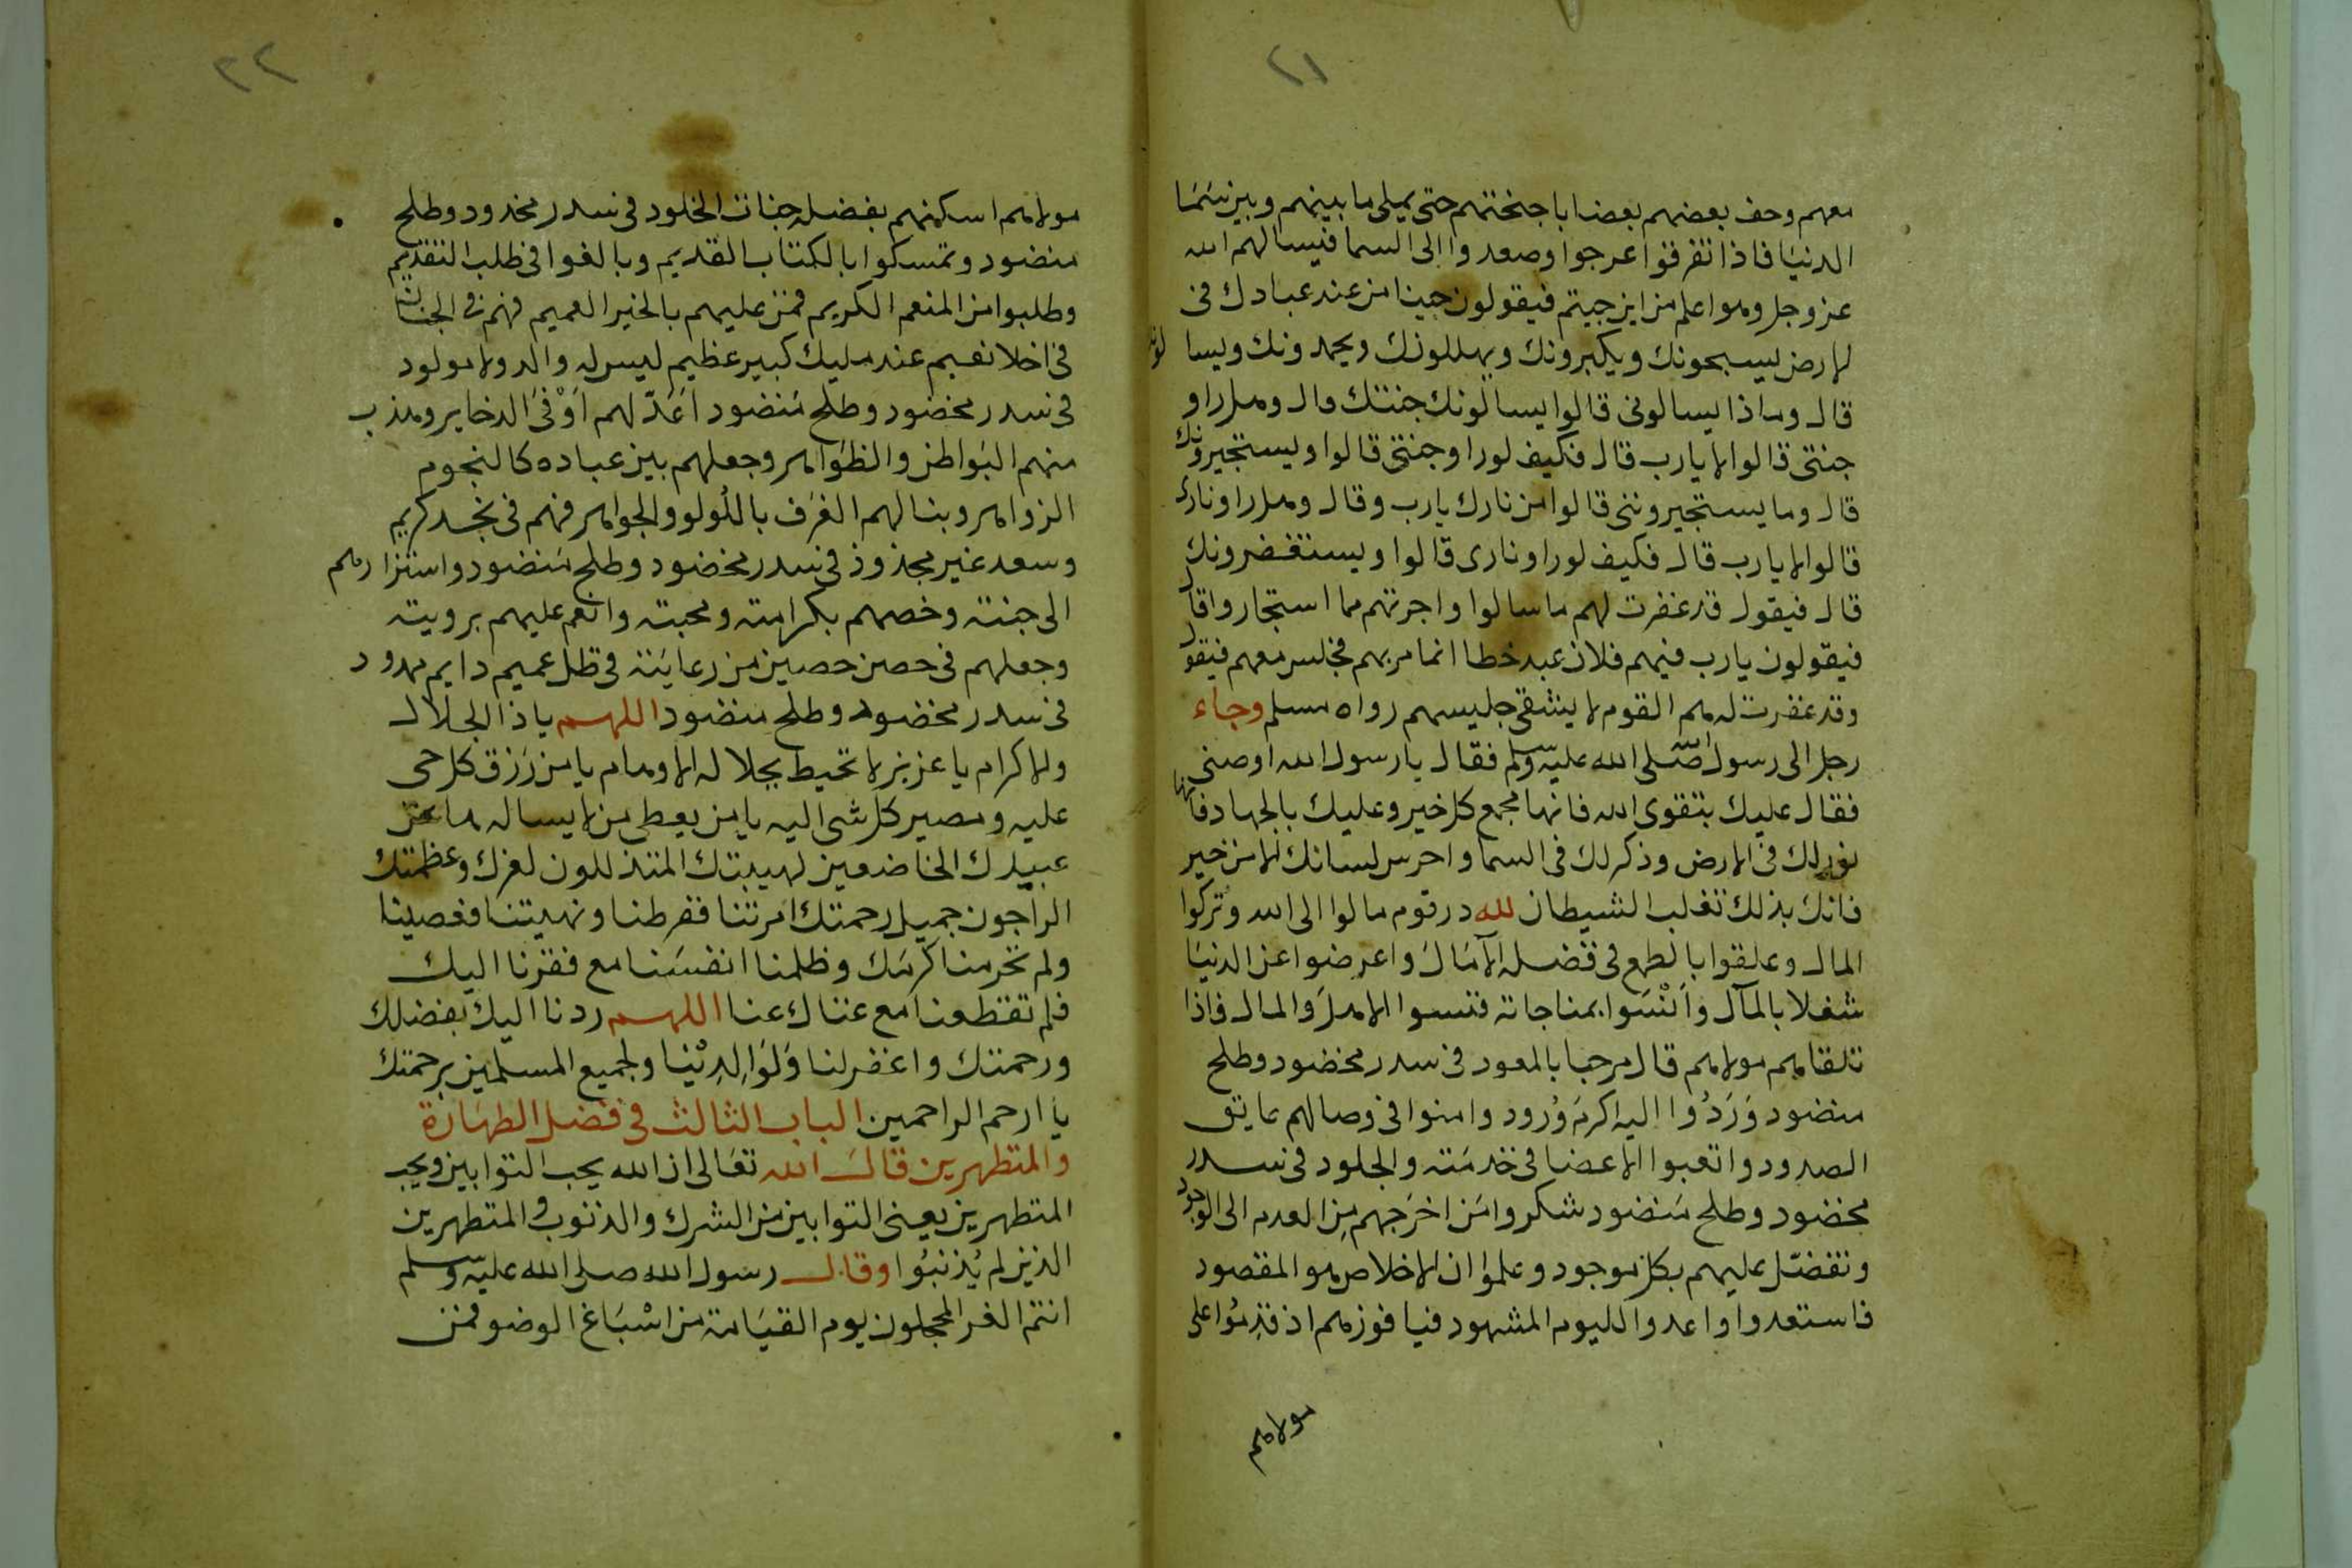 ٢١
معهم وحف بعضهم بعضا باجنحتهم حتى يملى ما بينهم وبين سَمَا
الدنيَا فاذا تفرقوا عرجوا وصعدوا الى السما فيسالهم الله
عز وجل وهو اعلم من اين جيتم فيقولون جينا من عند عبادك فى
الارض يسبحونك ويكبرونك ويهللونك ويحمدونك ويسا لونك
قال وماذا يسالونى قالوا يسالونك جنتك قال وهل راو
جنتى قالوا لا يارب قال فكيف لو راو جنتى قالوا ويستجيرونك
قال وما يستجيروننى قالوا من نارك يارب وقال وهل راو نارى
قالوا لا يارب قال فكيف لو راو نارى قالوا ويستغفرونك
قال فيقول قد غفرت لهم ما سالوا واجرتهم مما استجاروا قال
فيقولون يارب فيهم فلان عبد خطا انما مر بهم فجلس معهم فيقول
وقد غفرت له هم القوم لا يشقى جليسهم رواه مسلم وجاء
رجل الى رسول الله صلى الله عليه وسلم فقال يا رسول الله اوصنى
فقال عليك بتقوى الله فانها مجمع كل خير وعليك بالجهاد فانها
نور لك فى الارض وذكر لك فى السما واحرس لسانك الا من خير
فانك بذلك تغلب الشيطان لله در قوم مالوا الى الله وتركوا
المال وعلقوا بالطمع فى فضله الآمَال واعرضوا عن الدنيَا
شغلا بالمآل وأنْسَوا بمناجاته فنسوا الاهل والمال فاذا
تلقاهم مولاهم قال مرحبا بالمعود فى سدر مخضود وطلح
منضود وَرَدُوا اليه اكرمَ وُرود وامنوا فى وصالهم عايق
الصدود واتعبوا الاعضا فى خدمَته والجلود فى سدر
مخضود وطلح مَنضود شكروا مَن اخرَجهم مِن العدم الى الوجود
وتفضّل عليهم بكل موجود وعلموا ان الاخلاص هو المقصود
فاستعدوا واعدوا لليوم المشهود فيا فوزهم اذ قدِمُوا على
مولاهم
٢٢
مولاهم اسكنهم بفضله جنات الخلود فى سدر مخدود وطلح
منضود وتمسكوا بالكتاب القديم وبالغوا فى طلب التقديم
وطلبوا من المنعم الكريم فمن عليهم بالخير العميم فهم فى الجنان
فى اخلا نعيم عند مليك كبير عظيم ليس له والد ولا مولود
فى سدر مخضود وطلح مَنضود اَعَدّ لهم اَوْفىَ الدخاير وهذب
منهم البَواطن والظوَاهر وجعلهم بين عباده كالنجوم
الزواهر وبنا لهم الغرَف باللُولو والجواهر فهم فى مجد كريم
وسعد غير مجذوذ فى سدر مخضود وطلح مَنضود واستزارهم
الى جنته وخصهم بكرامته ومحبته وانعم عليهم برويته
وجعلهم فى حصن حصين من رعايَته فى ظل عميم دايم ممدود
فى سدر مخضود وطلح منضود اللهم ياذا الجلال
والاكرام يا عزيز لا تحيط بجلاله الاوهام يا من رَزق كل حى
عليه ومصير كل شى اليه يا من يعطى من لا يساله ها نحن
عبيدك الخاضعين لهيبتك المتذللون لعزك وعظمتك
الراجون جميل رحمتك امرتنا ففرطنا ونهيتنا فعصينا
ولم تحرمنا كرمَك وظلمنا انفسَنا مع فقرنا اليك
فلم تقطعنا مع غناك عنا اللهم ردنا اليك بفضلك
ورحمتك واغفر لنا وَلوَالِدِيْنا ولجميع المسلمين برحمتك
يا ارحم الراحمين الباب الثالث فى فضل الطهَارة
والمتطهرين قالَ الله تعَالى ان الله يحب التوابين ويحب
المتطهرين يعنى التوابين من الشرك والذنوب والمتطهرين
الذين لم يُذنبُوا وقال رسول الله صلى الله عليه وسلم
انتم الغر المحجلون يوم القيَامة من اسْبَاغ الوضو فمن